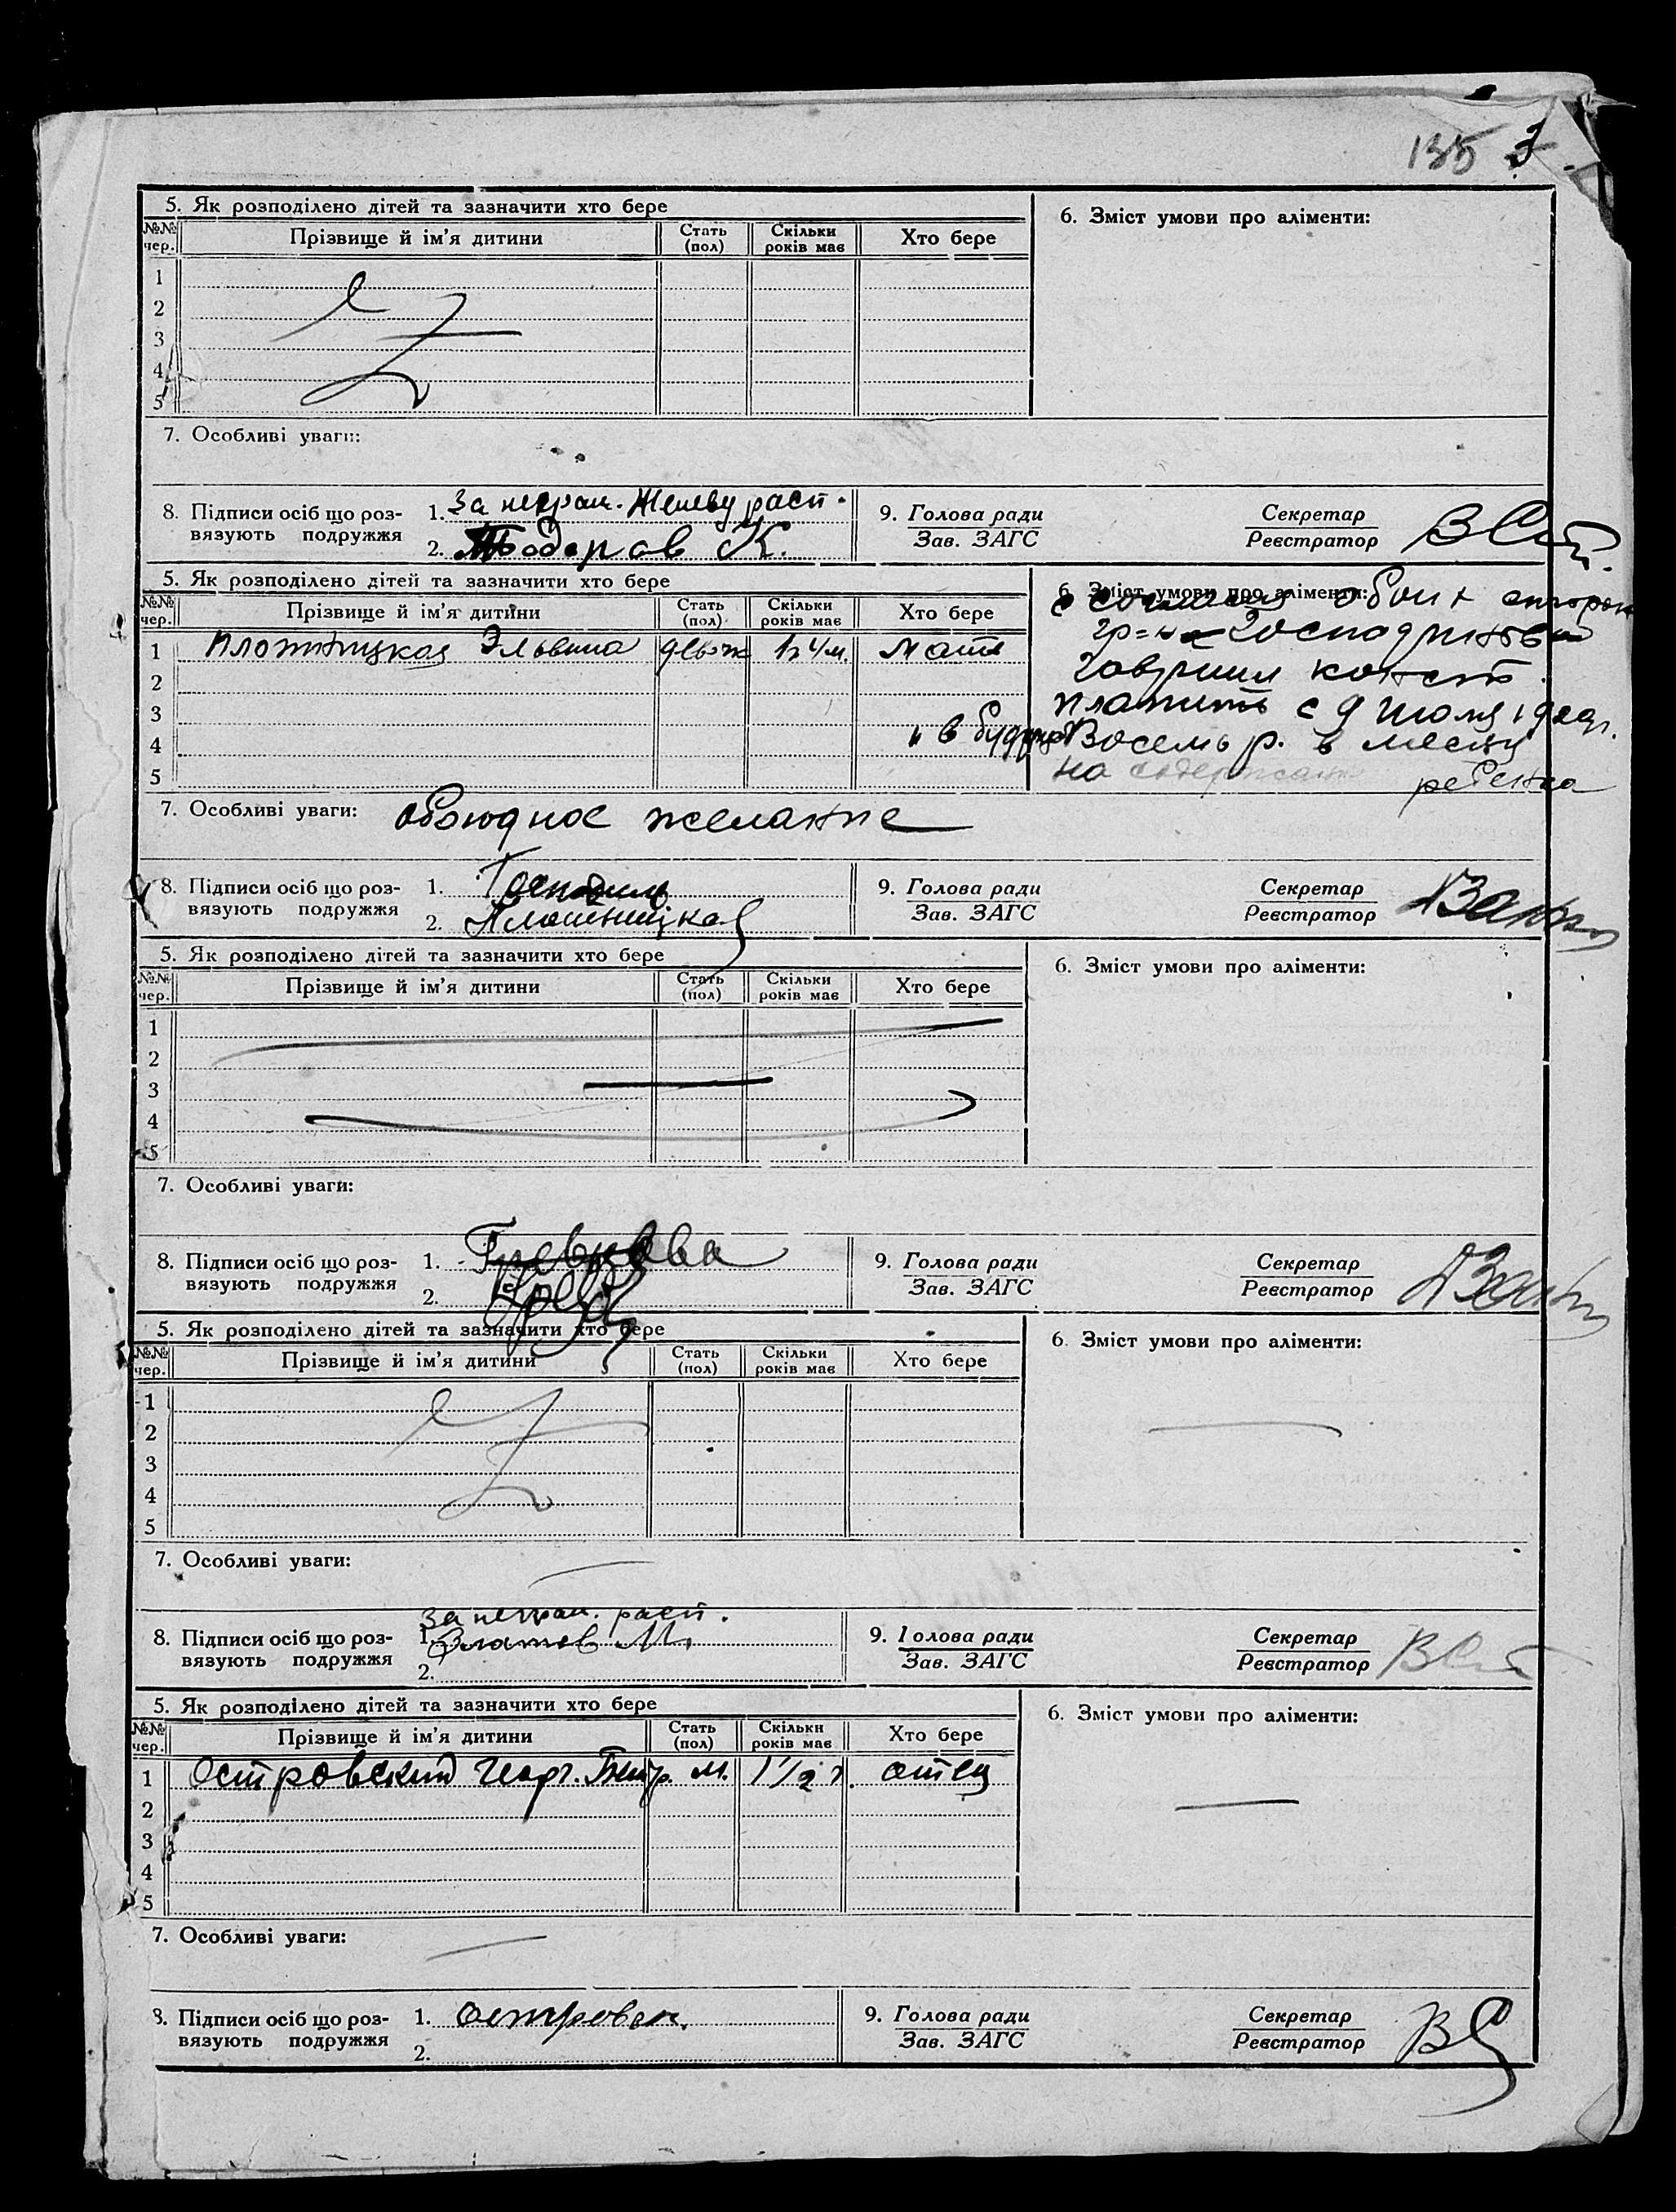 135
5. Як розподілено дітей та зазначити хто бере
6. Зміст умови про аліменти:
№№ чер. Прізвище й ім'я дитини Стать (пол) Скільки років має Хто бере
1
2
3
4
5
7. Особливі уваги:
8. Підписи осіб що роз-
вязують подружжя
1. За неграм. Желеву расп.
2. Тодоров К.
9. Голова ради
Зав. ЗАГС
Секретар
Реєстратор
5. Як розподілено дітей та зазначити хто бере
6. Зміст умови про аліменти:
с согласия обоих сторон
№№ чер. Прізвище й ім'я дитини Стать (пол) Скільки років має Хто бере
1 Плотницкая Эльвина девочк 1 г. 4 м. Мать
2
3
4
5
гр-н
платить с 9 июля
и в будущ Восемь р. в месяц
на содержание ребенка
7. Особливі уваги: обоюдное желание
8. Підписи осіб що роз-
вязують подружжя
1.
2. Плотницкая
9. Голова ради
Зав. ЗАГС
Секретар
Реєстратор
5. Як розподілено дітей та зазначити хто бере
6. Зміст умови про аліменти:
№№ чер. Прізвище й ім'я дитини Стать (пол) Скільки років має Хто бере
1
2
3
4
5
7. Особливі уваги:
8. Підписи осіб що роз-
вязують подружжя
1.
2.
9. Голова ради
Зав. ЗАГС
Секретар
Реєстратор
5. Як розподілено дітей та зазначити хто бере
6. Зміст умови про аліменти:
№№ чер. Прізвище й ім'я дитини Стать (пол) Скільки років має Хто бере
1
2
3
4
5
7. Особливі уваги:
За неграм. расп.
8. Підписи осіб що роз-
вязують подружжя
1. Златов М.
2.
9. Голова ради
Зав. ЗАГС
Секретар
Реєстратор
5. Як розподілено дітей та зазначити хто бере
6. Зміст умови про аліменти:
№№ чер. Прізвище й ім'я дитини Стать (пол) Скільки років має Хто бере
1 Островский Георг. м. 1 1/2 г. отец
2
3
4
5
7. Особливі уваги:
8. Підписи осіб що роз-
вязують подружжя
1. Островск.
2.
9. Голова ради
Зав. ЗАГС
Секретар
Реєстратор